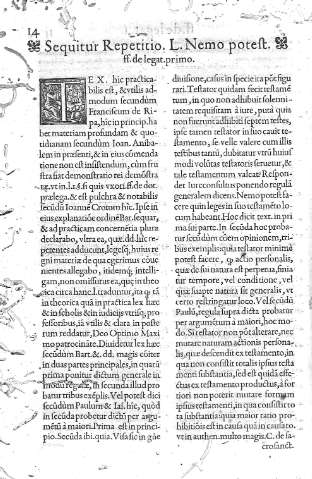 14
Sequitur Repetitio. L. Nemo potest.
ff. de legat. primo.
TEX. hic practica
bilis est, & vtilis ad
modum secundùm
Franciscum de Ri
pa, hic in princip. ha
bet materiam profundam & quo
tidianam secundùm Ioan. Aniba
lem in præsenti, & in eius cõmenda
tione non est insistendum, cùm fru
stra fiat demonstratio rei demõstra
tæ, vt in. l. 1. §. si quis vxori. ff. de dot.
prælega. & est pulchra & notabilis
secũdũ Ioannẽ Crotum hîc. Ipse in
eius explanatiõe ordinẽ Bar. sequar,
& ad practicam concernẽtia plura
declarabo, vltra ea, quæ dd. hîc re-
petentes adducunt, legẽtes, huius re
gni materiæ de qua egerimus
cuentes allegabo, itidemq; intelli-
gam, non omittens ea, quę in theo
rica circa hanc. l. traduntur, ita qđ tã
in theoricâ quã in practica lex hæc
& in scholis & in iudicijs vtriusq; pro
fessoribus, iã vtilis & clara in poste
rum reddatur, Deo Optimo Maxi
mo patrocinãte. Diuidetur lex hæc
secundùm Bart. & dd. magis cõiter
in duas partes principales, in quarũ
prima ponitur dictum generale in
modũ regulæ, in secunda illud pro
batur tribus exẽplis. Vel potest dici
secũdum Paulum & Ias. hîc, quòd
in secũda probetur dictũ per argu-
mẽtũ à maiori. Prima est in princi-
pio. Secũda ibi. quia. Vĩsa sic in gñe
diuisione, casus in specie ita põt figu
rari. Testator quidam fecit testamẽ
tum, in quo non adhibuit solenni-
tatem requisitam à iure, putà quia
non fuerunt adhibiti septem testes,
ipse tamen testator in suo cauit te-
stamento, se velle valere cum illis
testibus tantũ, dubitatur vtrũ huius
modi volũtas testatoris seruetur, &
tale testamentum valeat? Respon-
det Iurecõsultus ponendo regulã
generalem dicens. Nemo potest fa
cere quin leges in suo testamẽto lo-
cum habeant. Hoc dicit text. in pri
ma sui parte. In secũda hoc probat-
tur secundùm cõem opinionem, tri
bus exemplis quia testator minimè
potest facere, qđ actio personalis,
quæ de sui natura est perpetua, finia
tur tempore, vel conditione, vel
quæ suapte natura sit generalis, vt
certo restringatur loco. Vel secũdũ
Paulũ, regula supra dicta probatur
per argumentum à maiori, hoc mo-
do. Si testator nõ põt alterare, nec
mutare naturam actionis persona-
lis, quæ descendit ex testamento, in
quâ non cõsistit totalis ipsius testa
menti substãtia, sed est quidã effectus
ex testamento productus, à fortio
ri non poterit mutare formam
ipsius testamẽti, in qua cõsistit to
ta substantia quia maior ratio pro-
hibitionis est in causa quã in causato,
vt in authen. multo magis. C. de sa-
crosanct.